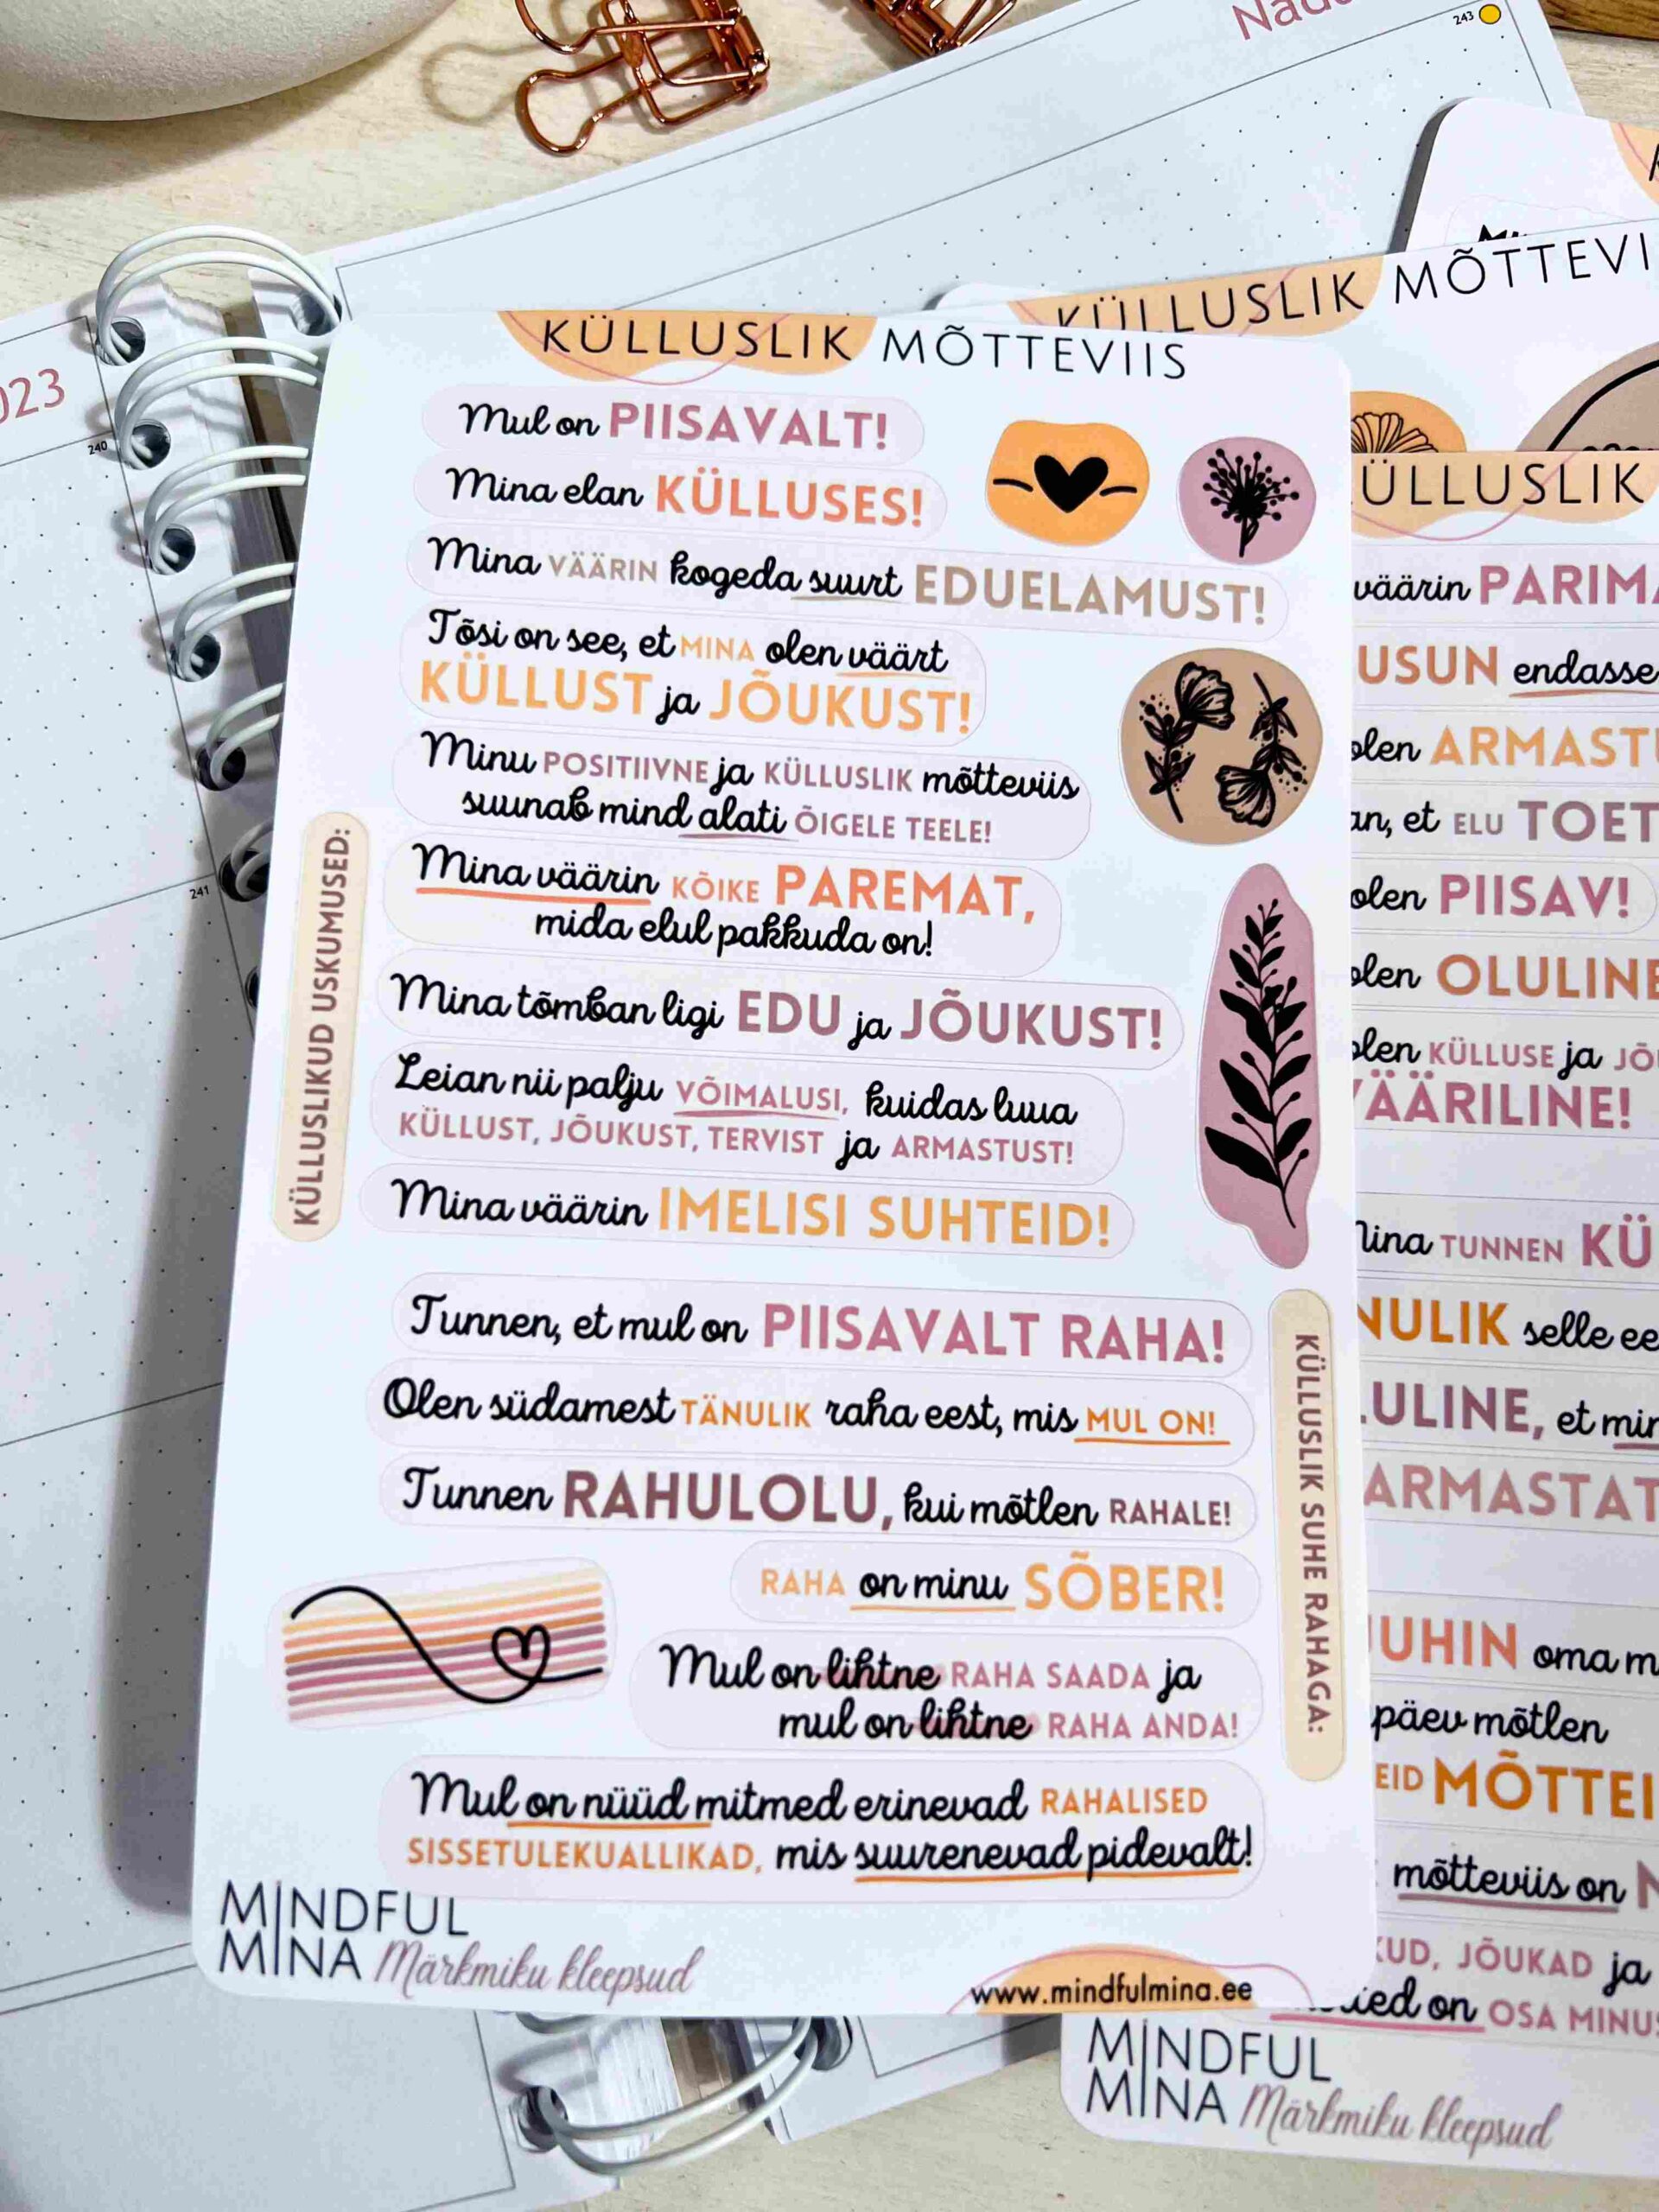 243
023
240
241
KÜLLUSLIK MÕTTEVIIS
Mul on PIISAVALT!
Mina elan KÜLLUSES!
Mina VÄÄRIN kogeda suurt EDUELAMUST!
Tõsi on see, et MINA olen väärt
KÜLLUST ja JÕUKUST!
Minu POSITIIVNE ja KÜLLUSLIK mõtteviis
suunab mind alati ÕIGELE TEELE!
KÜLLUSLIKUD USKUMUSED:
Mina väärin KÕIKE PAREMAT,
mida elul pakkuda on!
Mina tõmban ligi EDU ja JÕUKUST!
Leian nii palju VÕIMALUSI, kuidas luua
KÜLLUST, JÕUKUST, TERVIST ja ARMASTUST!
Mina väärin IMELISI SUHTEID!
Tunnen, et mul on PIISAVALT RAHA!
Olen südamest TÄNULIK raha eest, mis MUL ON!
Tunnen RAHULOLU, kui mõtlen RAHALE!
KÜLLUSLIK SUHE RAHAGA:
RAHA on minu SÕBER!
Mul on lihtne RAHA SAADA ja
mul on lihtne RAHA ANDA!
Mul on nüüd mitmed erinevad RAHALISED
SISSETULEKUALLIKAD, mis suurenevad pidevalt!
MINDFUL
MINA Märkmiku kleepsud
www.mindfulmina.ee
KÜLLUSLIK MÕTTEVI
ÜLLUSLIK
väärin PARIMA
USUN endasse
olen ARMASTU
an, et ELU TOET
olen PIISAV!
olen OLULINE
olen KÜLLUSE ja JÕ
VÄÄRILINE!
Mina TUNNEN KÜ
NULIK selle ee
LULINE, et min
ARMASTAT
UHIN oma m
päev mõtlen
EID MÕTTEI
mõtteviis on
KUD, JÕUKAD ja
ed on OSA MINUS
MINDFUL
MINA Märkmiku kleepsud